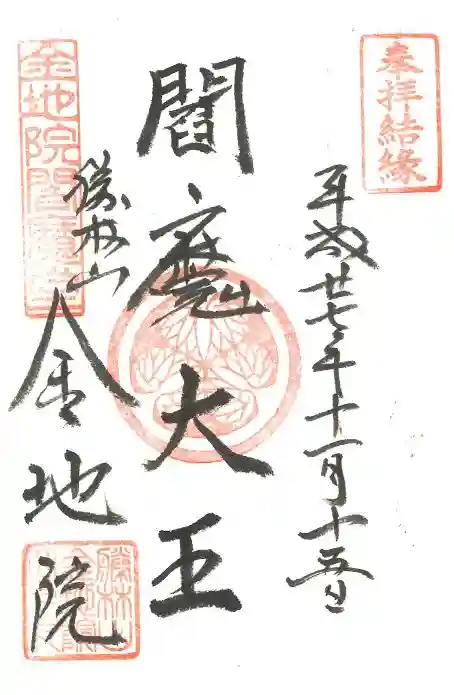 奉拝結縁
平成廿七年十一月十五日
閻魔大王
勝林山
金地院
金地院閻魔堂
勝林山
金地院